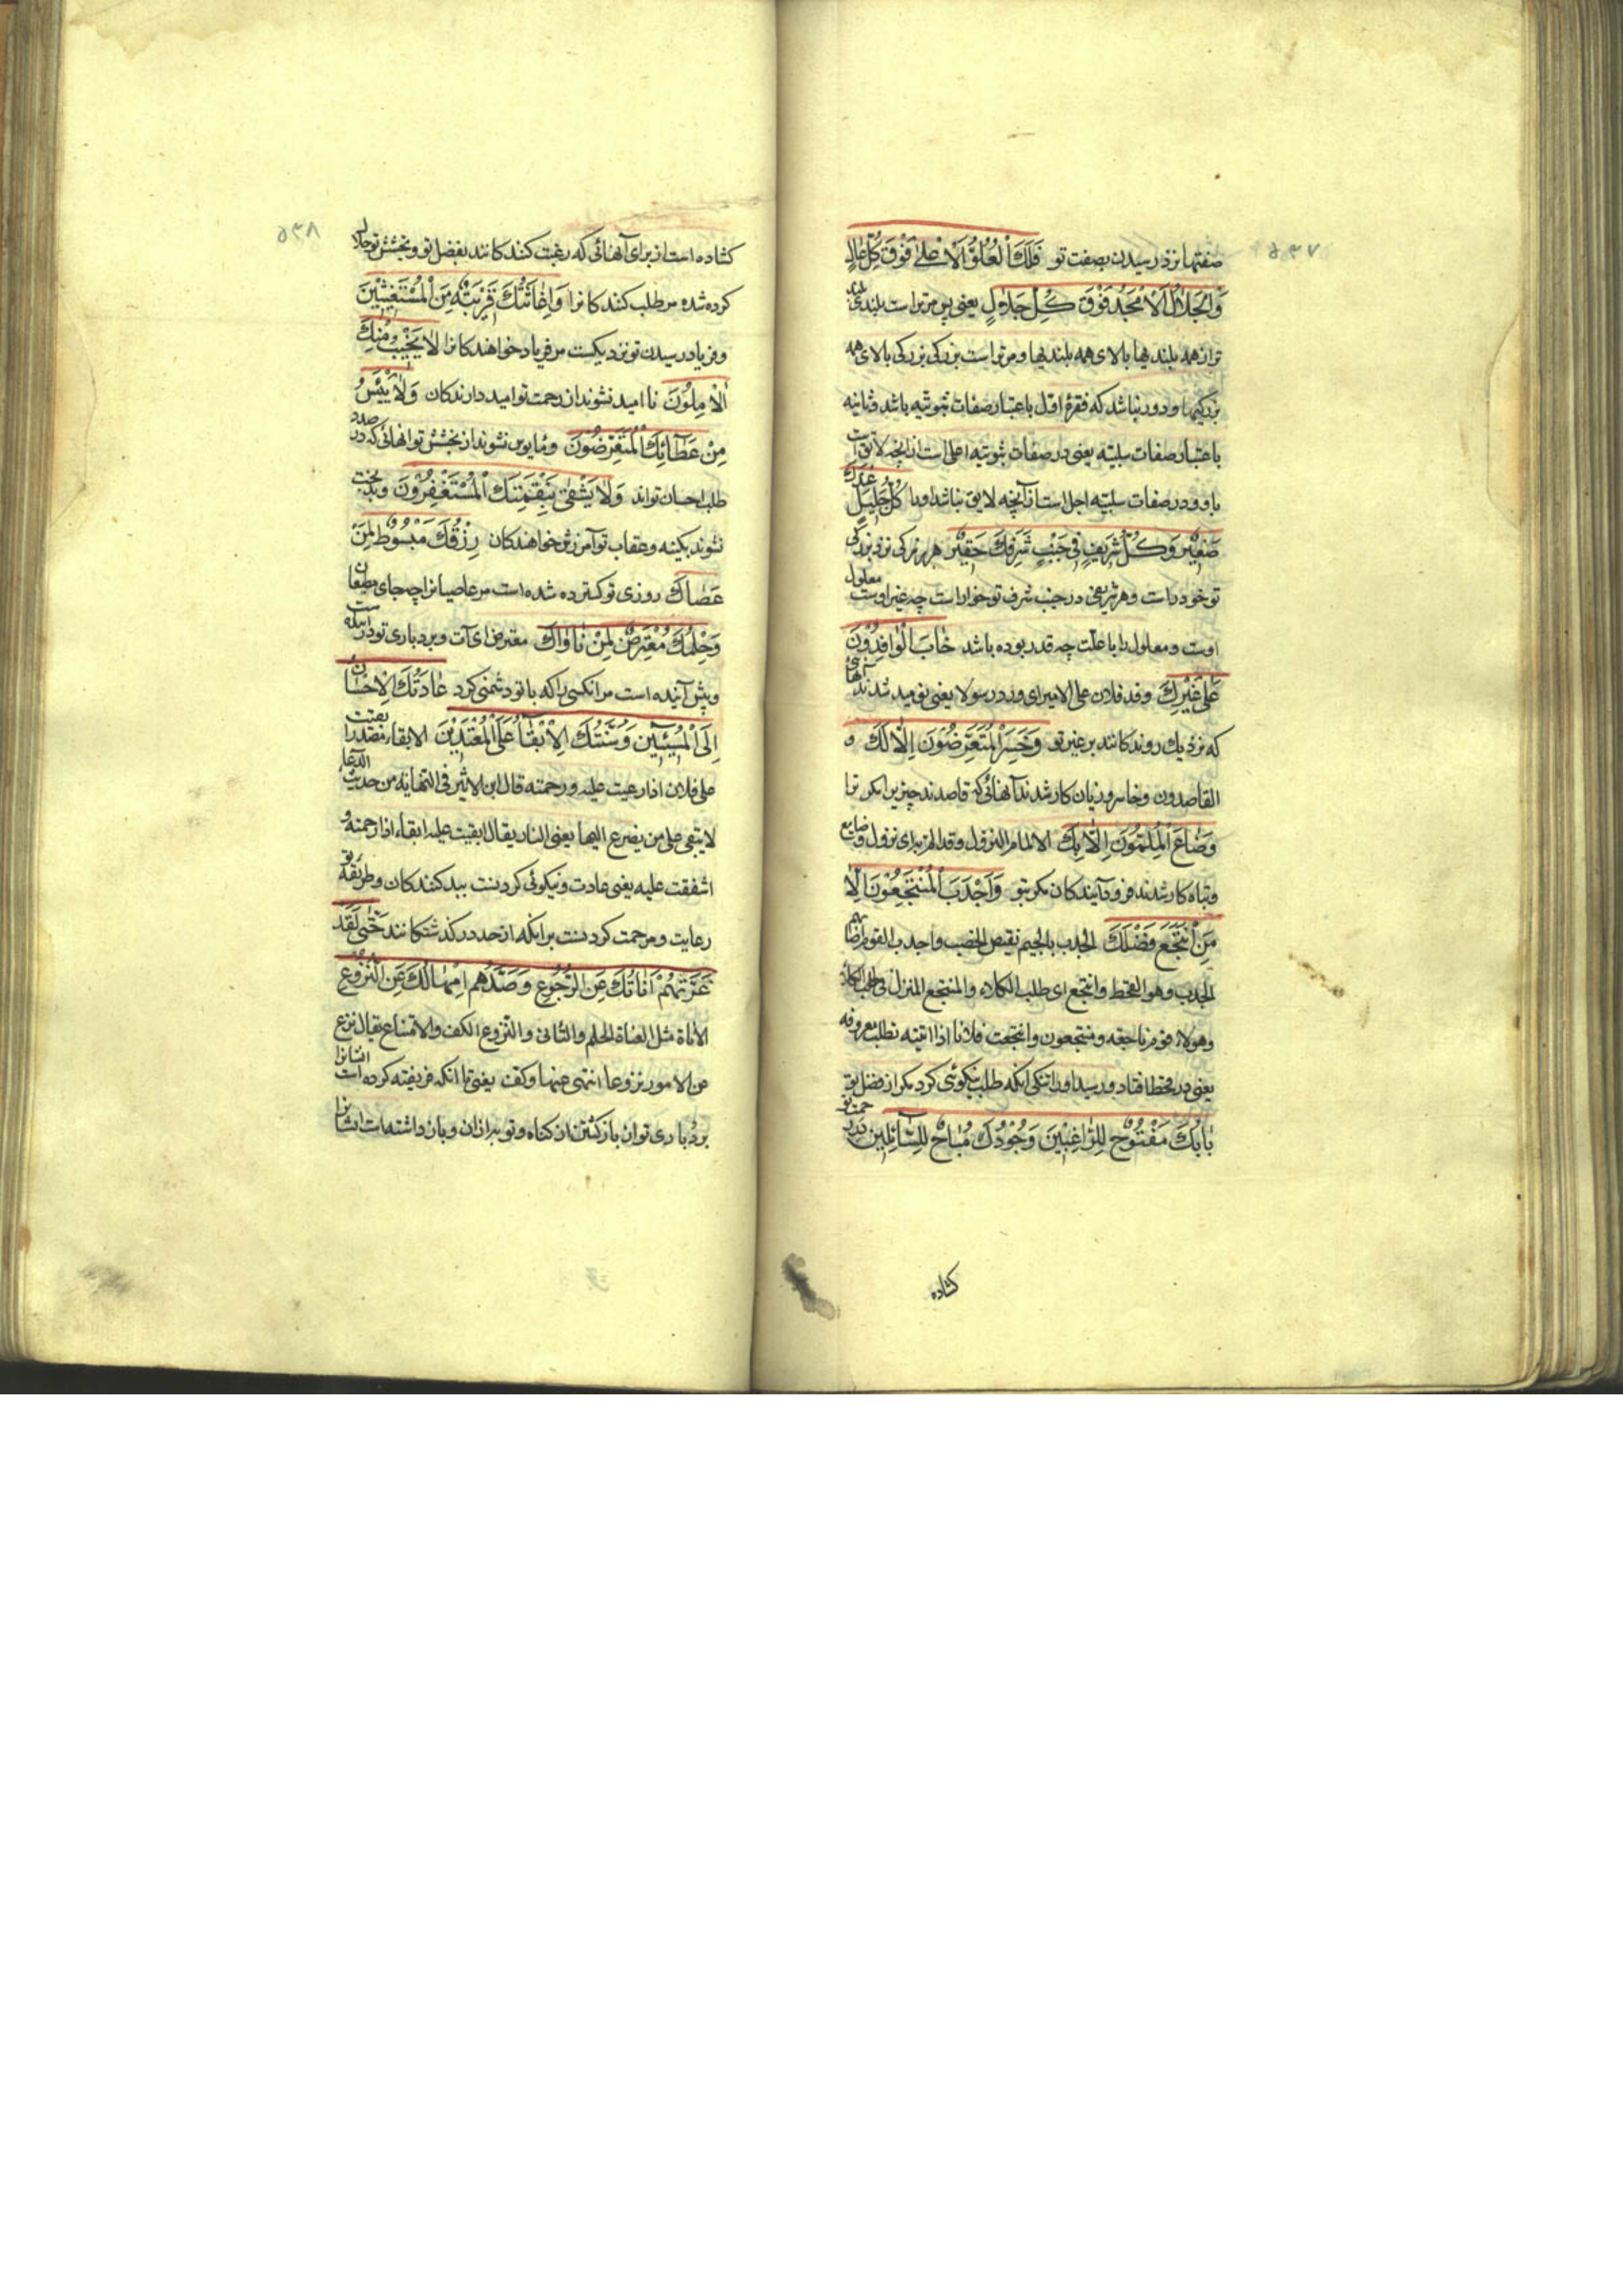 ۵۳۷
صفتها نزد رسیدن بصفت تو فَلَكَ الْعُلُوُّ الْاَعْلٰی فَوْقَ كُلِّ عٰالٍ
وَالْجَلٰالُ الْاَمْجَدُ فَوْقَ كُلِّ جَلٰالٍ یعنی پس مر تراست بلندی بلندی
تر از همه بلندیها بالای همه بلندیها و مر تراست بزرکی بزرکی بالای همه
بزرکیها و دور نباشد که فقرهٔ اوّل باعتبار صفات ثبوتیه باشد و ثانیه
باعتبار صفات سلبیّه یعنی در صفات ثبوتیه اعلی است از انچه لایق است
باو و در صفات سلبیّه اجل است از آنچه لایق نباشد او را كُلُّ جَلِیلٍ عِنْدَكَ
صَغِیْرٌ وَكُلُّ شَرِیفٍ فِی جَنْبِ شَرَفِكَ حَقِیْرٌ هر بزرکی نزد بزرکی
تو خورد است و هر شریفی در جنب شرف تو خوار است چه غیر اوست معلول
اوست و معلول را با علّت چه قدر بوده باشد خٰابَ الْوٰافِدُوْنَ
عَلٰی غَیْرِكَ وفد فلان علی الامیر ای ورد رسولا یعنی نومید شدند آنهائی
که نزدیك روند کانند بر غیر تو وَخَسِرَ الْمُتَعَرِّضُوْنَ اِلّٰا لَكَ و
القاصدون و خاسر و زیان کار شدند آنهائی که قاصدند چیزیرا مکر ترا
وَضٰاعَ الْمُلِمُّونَ اِلّٰا بِكَ الالمام النزول وقد الم به ای نزول و ضایع
و تباه کار شدند فرود آیند کان مکر بتو وَاَجْدَبَ الْمُنْتَجِعُوْنَ اِلّٰا
مَنِ انْتَجَعَ فَضْلَكَ الجدب بالجیم نقیض الخصب واجدب القوم اصابهم
الجدب وهو القحط وانتجع ای طلب الکلاء والمنتجع المنزل فی طلب الکلاء
وهولاء قوم ناجعه و منتجعون وانتجعت فلانا اذا اتیته نطلب معروفه
یعنی در قحط افتاد و رسید او را تنکی انکه طلب نیکوئی کرد مکر از فضل تو
بٰابُكَ مَفْتُوْحٌ لِلرّٰاغِبِیْنَ وَجُوْدُكَ مُبٰاحٌ لِلسّٰآئِلِیْنَ در رحمت تو
کشاده
۵۳۸
کشاده است از برای آنهائی که رغبت کنند کانند بفضل تو و بخشش تو حلال
کرده شده مر طلب کنند کانرا وَاِغٰاثَتُكَ قَرِیْبَةٌ مِنَ الْمُسْتَغِیْثِیْنَ
و فریاد رسیدن تو نزدیکست مر فریاد خواهند کانرا لٰا یَخِیْبُ مِنْكَ
الْاٰمِلُوْنَ نا امید نشوند از رحمت تو امید دارند کان وَلٰا یَیْئَسُ
مِنْ عَطٰآئِكَ الْمُتَعَرِّضُوْنَ و مأیوس نشوند از بخشش تو انهائی که در صدد
طلب احسان تواند وَلٰا یَشْقٰی بِنَقِمَتِكَ الْمُسْتَغْفِرُوْنَ و بدبخت
نشوند بکینه و عقاب تو آمرزش خواهند کان رِزْقُكَ مَبْسُوْطٌ لِمَنْ
عَصٰاكَ روزی تو کسترده شده است مر عاصیانرا چه جای مطیعان
وَحِلْمُكَ مُعْتَرِضٌ لِمَنْ نٰاوٰاكَ معترض ای آت و بردباری تو در آینده است
و پیش آینده است مر انکسی را که با تو دشمنی کرد عٰادَتُكَ الْاِحْسٰانُ
اِلَی الْمُسِیْئِیْنَ وَسُنَّتُكَ الْاِبْقٰآءُ عَلَی الْمُعْتَدِیْنَ الابقاء مصدر ابقیت
علی فلان اذا رعیت علیه ورحمته قال ابن الاثیر فی النهایه من حدیث الدعاء
لا یبقی علی من یضرع الیها یعنی النار یقال ابقیت علیه ابقاء اذا رحمته و
اشفقت علیه یعنی عادت و نیکوئی کردنست ببد کنند کان و طریقه تو
رعایت و مرحمت کردنست بر انکه از حد در کذشتکانند حَتّٰی لَقَدْ
غَرَّتْهُمْ اَنٰاتُكَ عَنِ الرُّجُوْعِ وَصَدَّهُمْ اِمْهٰالُكَ عَنِ النُّزُوْعِ
الاناة مثل القناة الحلم والتأنی والنّزوع الکف والامتناع یقال نزع
من الامور نزوعا انتهی عنها وکفت یعنی تا انکه فریفته کرده است ایشانرا
بردباری تو از بازکشتن از کناه و توبه از ان و باز داشته است ایشانرا